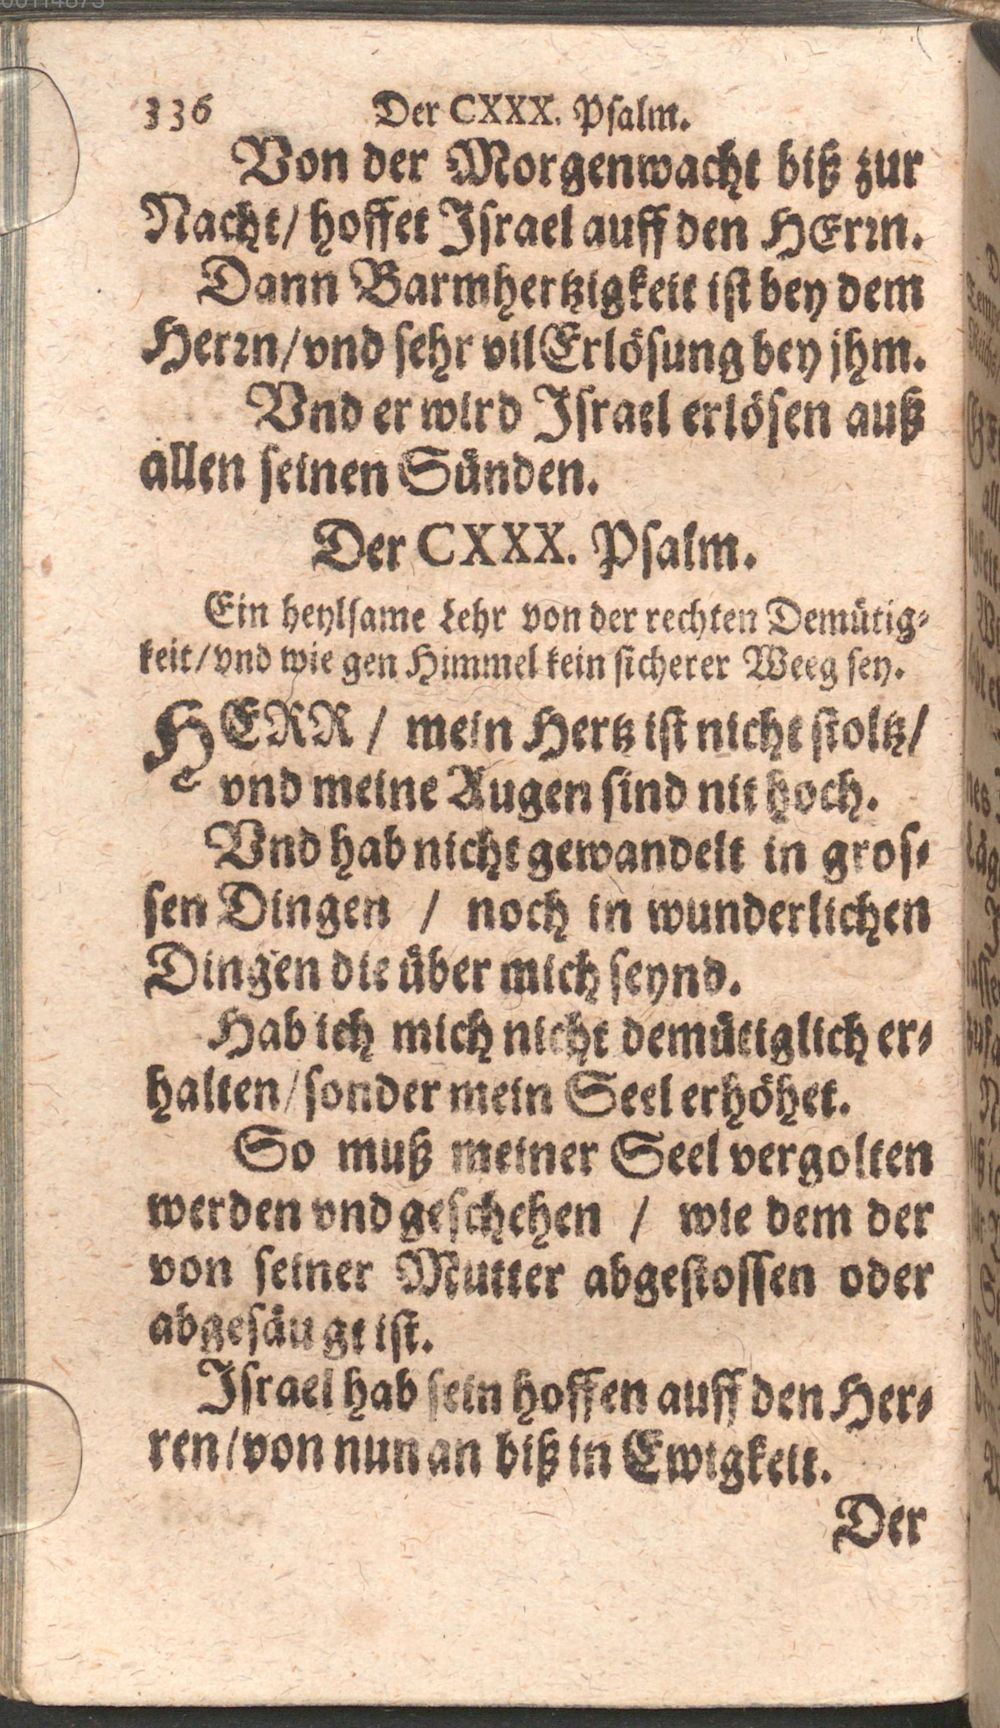 336 Der CXXX. Psalm.
Von der Morgenwacht biß zur
Nacht/ hoffet Israel auff den HErrn.
Dann Barmhertzigkeit ist bey dem
Herrn/ vnd sehr vil Erlösung bey jhm.
Vnd er wird Israel erlösen auß
allen seinen Sünden.
Der CXXX. Psalm.
Ein heylsame Lehr von der rechten Demütig-
keit/ vnd wie gen Himmel kein sicherer Weeg sey.
HERR / mein Hertz ist nicht stoltz/
vnd meine Augen sind nit hoch.
Vnd hab nicht gewandelt in gros-
sen Dingen / noch in wunderlichen
Dingen die über mich seynd.
Hab ich mich nicht demütiglich er-
halten/ sonder mein Seel erhöhet.
So muß meiner Seel vergolten
werden vnd geschehen / wie dem der
von seiner Mutter abgestossen oder
abgesäugt ist.
Israel hab sein hoffen auff den Her-
ren/ von nun an biß in Ewigkeit.
Der